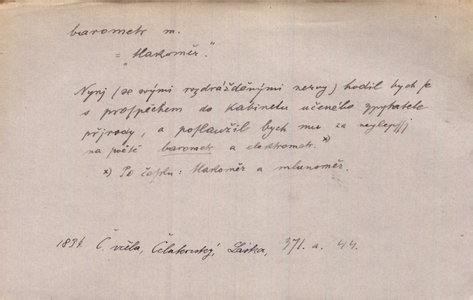 barometr m.
= „Tlakoměr."
Nyní (se svými rozdrážděnými nervy) hodil bych se
s prospěchem do kabinetu učeného zpytatele
přjrody, a posloužil bych mu za neylepšj
na počtě barometr a elektrometr. x)
x) Po česku: Tlakoměr a mlunoměr.
1834 Č. včela, Čelakovský, Láska, 371. a. 44.